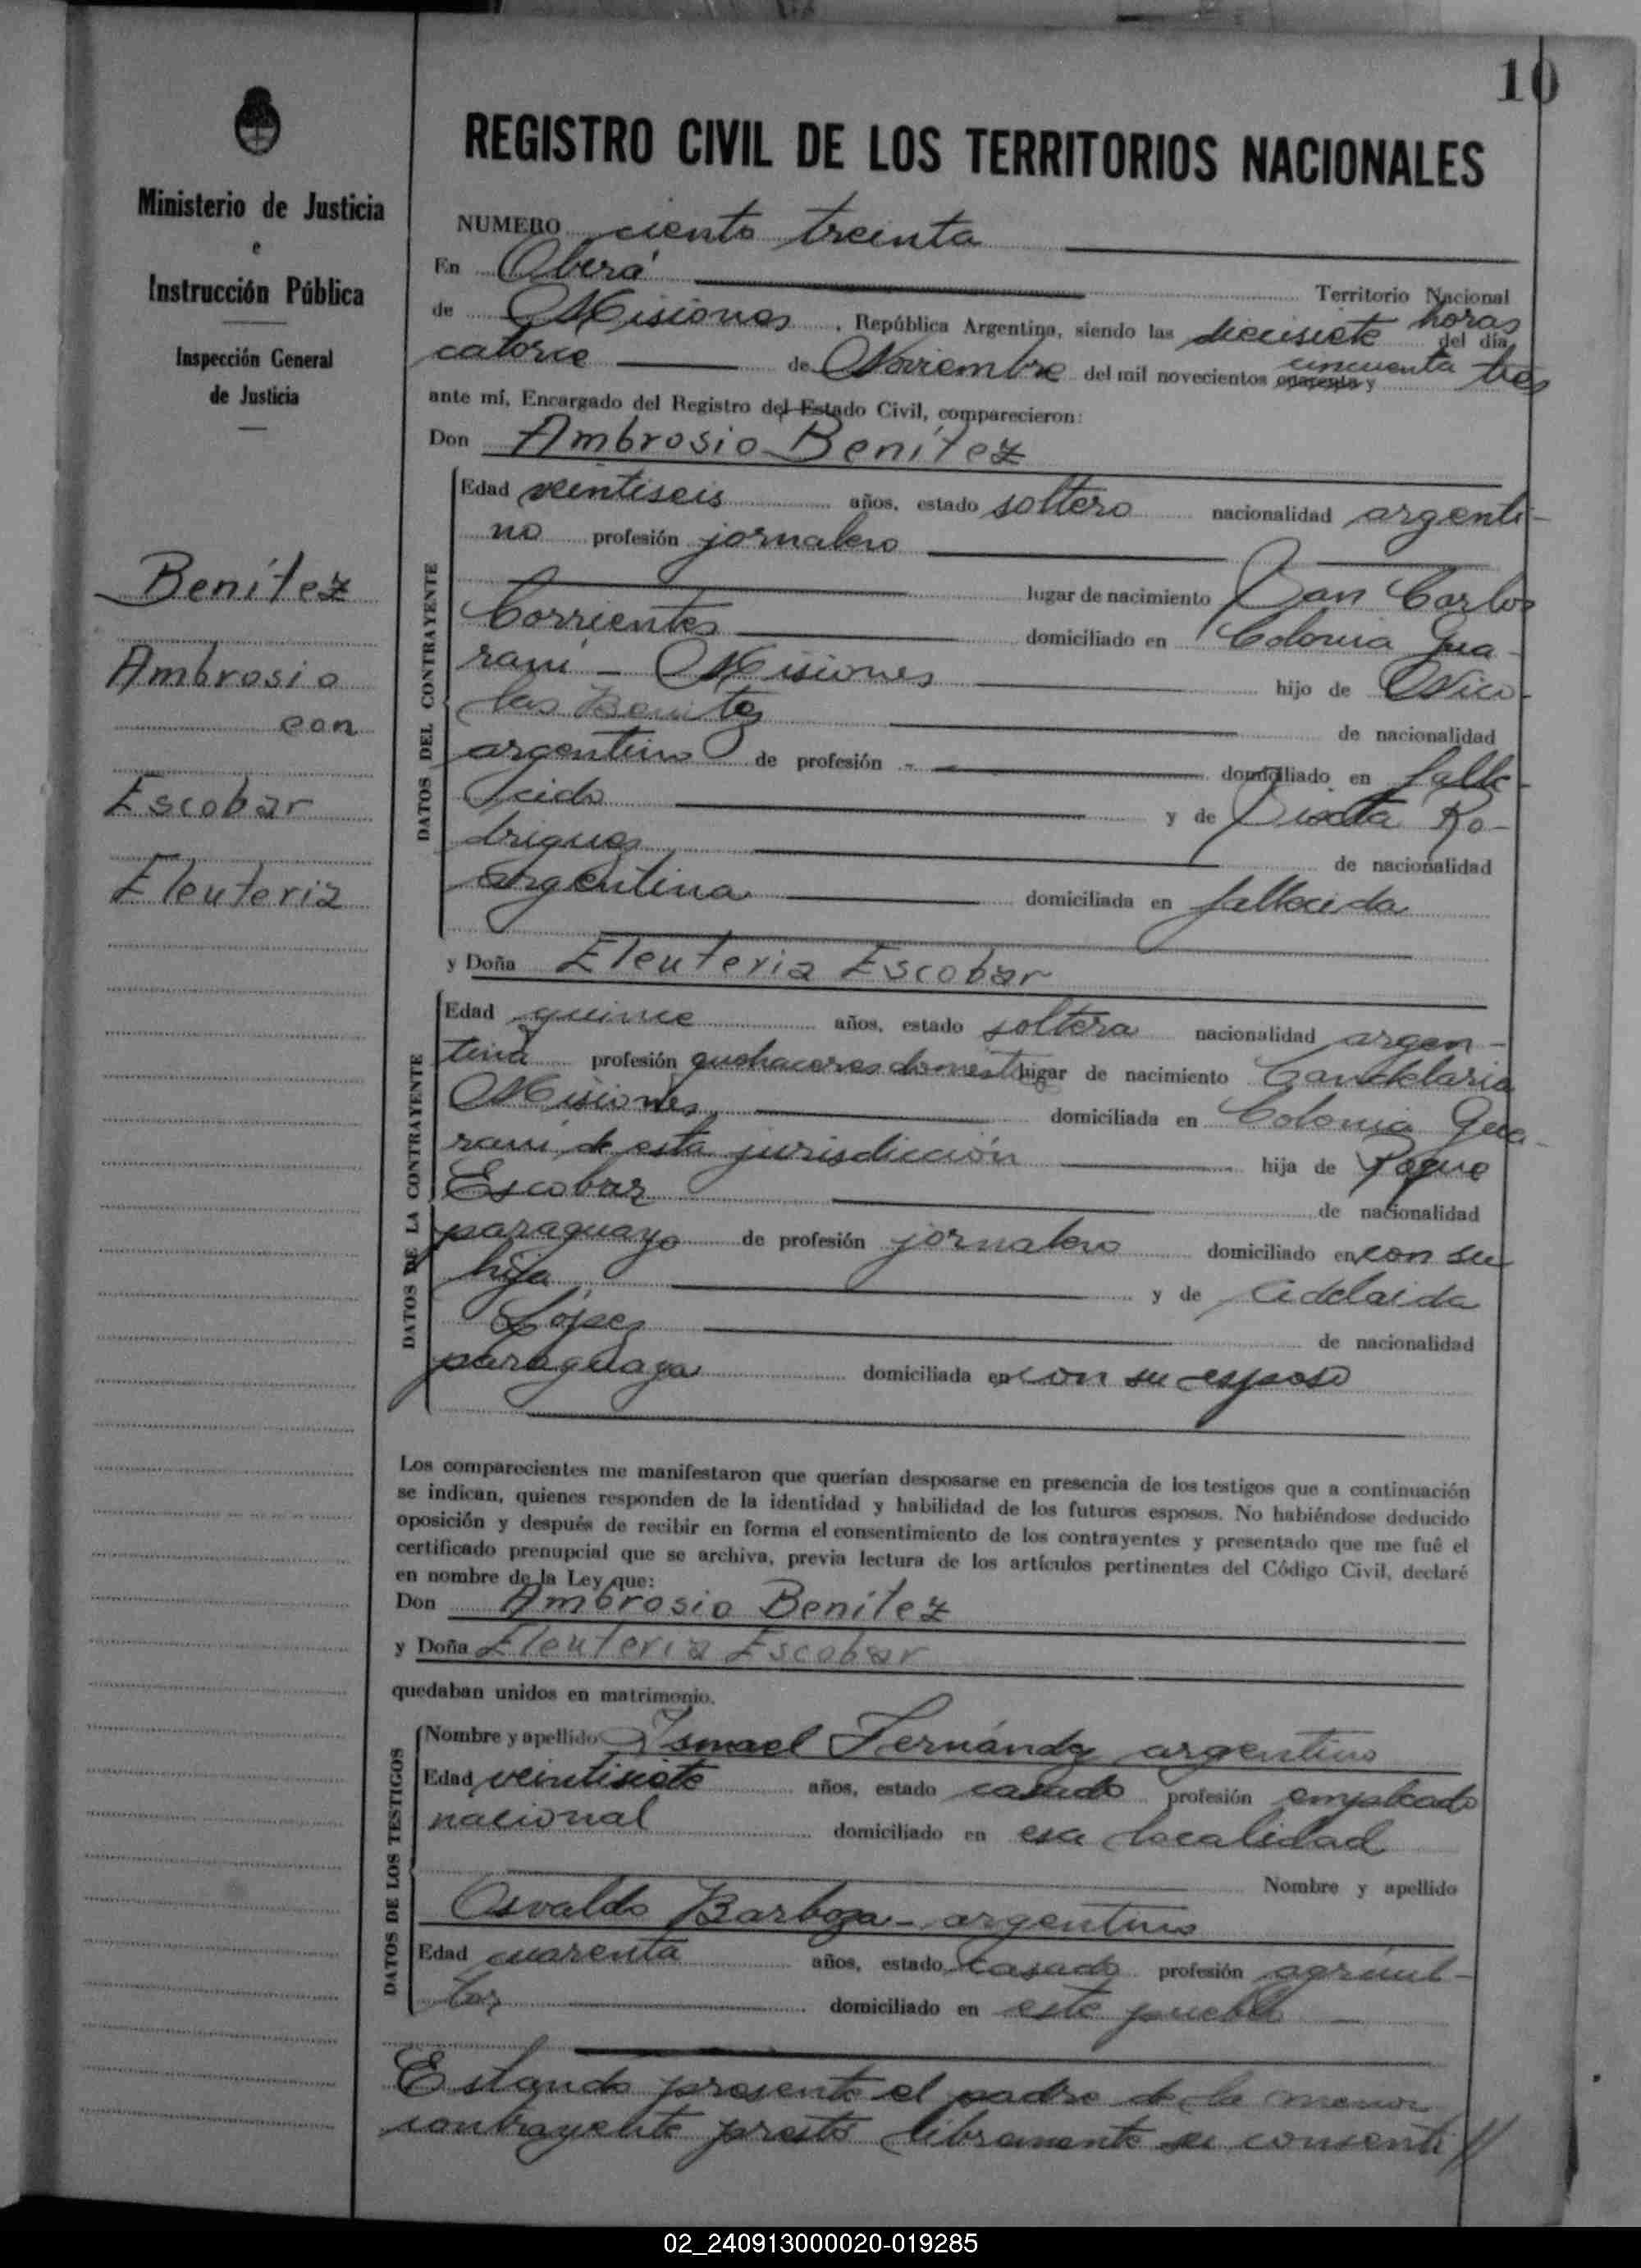 10
Ministerio de Justicia
e
Instrucción Pública
Inspección General
de Justicia
Benítez
Ambrosio
con
Escobar
Eleuteria
REGISTRO CIVIL DE LOS TERRITORIOS NACIONALES
NUMERO ciento treinta
En Oberá Territorio Nacional
de Misiones, República Argentina, siendo las diecisiete horas del día
catorce de Noviembre del mil novecientos cuarenta y cincuenta tres
ante mí, Encargado del Registro del Estado Civil, comparecieron:
Don Ambrosio Benítez
DATOS DEL CONTRAYENTE
Edad veintiseis años, estado soltero nacionalidad argenti-
no profesión jornalero
lugar de nacimiento San Carlos
Corrientes domiciliado en Colonia Gua-
raní - Misiones hijo de Nico-
las Benitez de nacionalidad
argentino de profesión - - domiciliado en falle-
cido y de Sixta Ro-
driguez de nacionalidad
argentina domiciliada en fallecida
y Doña Eleuteria Escobar
DATOS DE LA CONTRAYENTE
Edad quince años, estado soltera nacionalidad argen-
tina profesión quehaceres domest lugar de nacimiento Candelaria
Misiones domiciliada en Colonia Gua-
raní de esta jurisdicción hija de Roque
Escobar de nacionalidad
paraguayo de profesión jornalero domiciliado en con su
hija y de Adelaida
López de nacionalidad
paraguaya domiciliada en con su esposo
Los comparecientes me manifestaron que querían desposarse en presencia de los testigos que a continuación
se indican, quienes responden de la identidad y habilidad de los futuros esposos. No habiéndose deducido
oposición y después de recibir en forma el consentimiento de los contrayentes y presentado que me fué el
certificado prenupcial que se archiva, previa lectura de los artículos pertinentes del Código Civil, declaré
en nombre de la Ley que:
Don Ambrosio Benítez
y Doña Eleuteria Escobar
quedaban unidos en matrimonio.
DATOS DE LOS TESTIGOS
Nombre y apellido Ismael Fernández argentino
Edad veintisiete años, estado casado profesión empleado
nacional domiciliado en esa localidad
Nombre y apellido
Osvaldo Barboza - argentino
Edad cuarenta años, estado casado profesión agricul-
tor domiciliado en este pueblo
Estando presente el padre de la menor
contrayente prestó libremente su consenti //
02_240913000020-019285